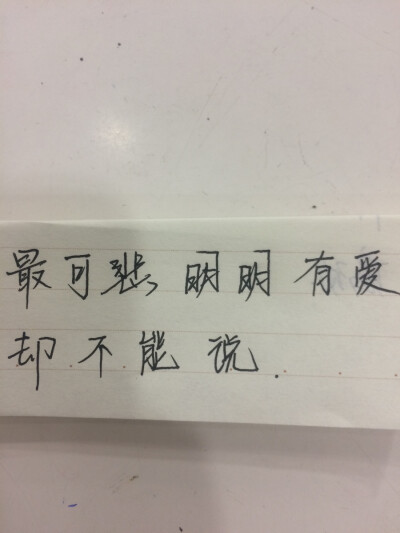 最可悲 明明有爱
却不能说.